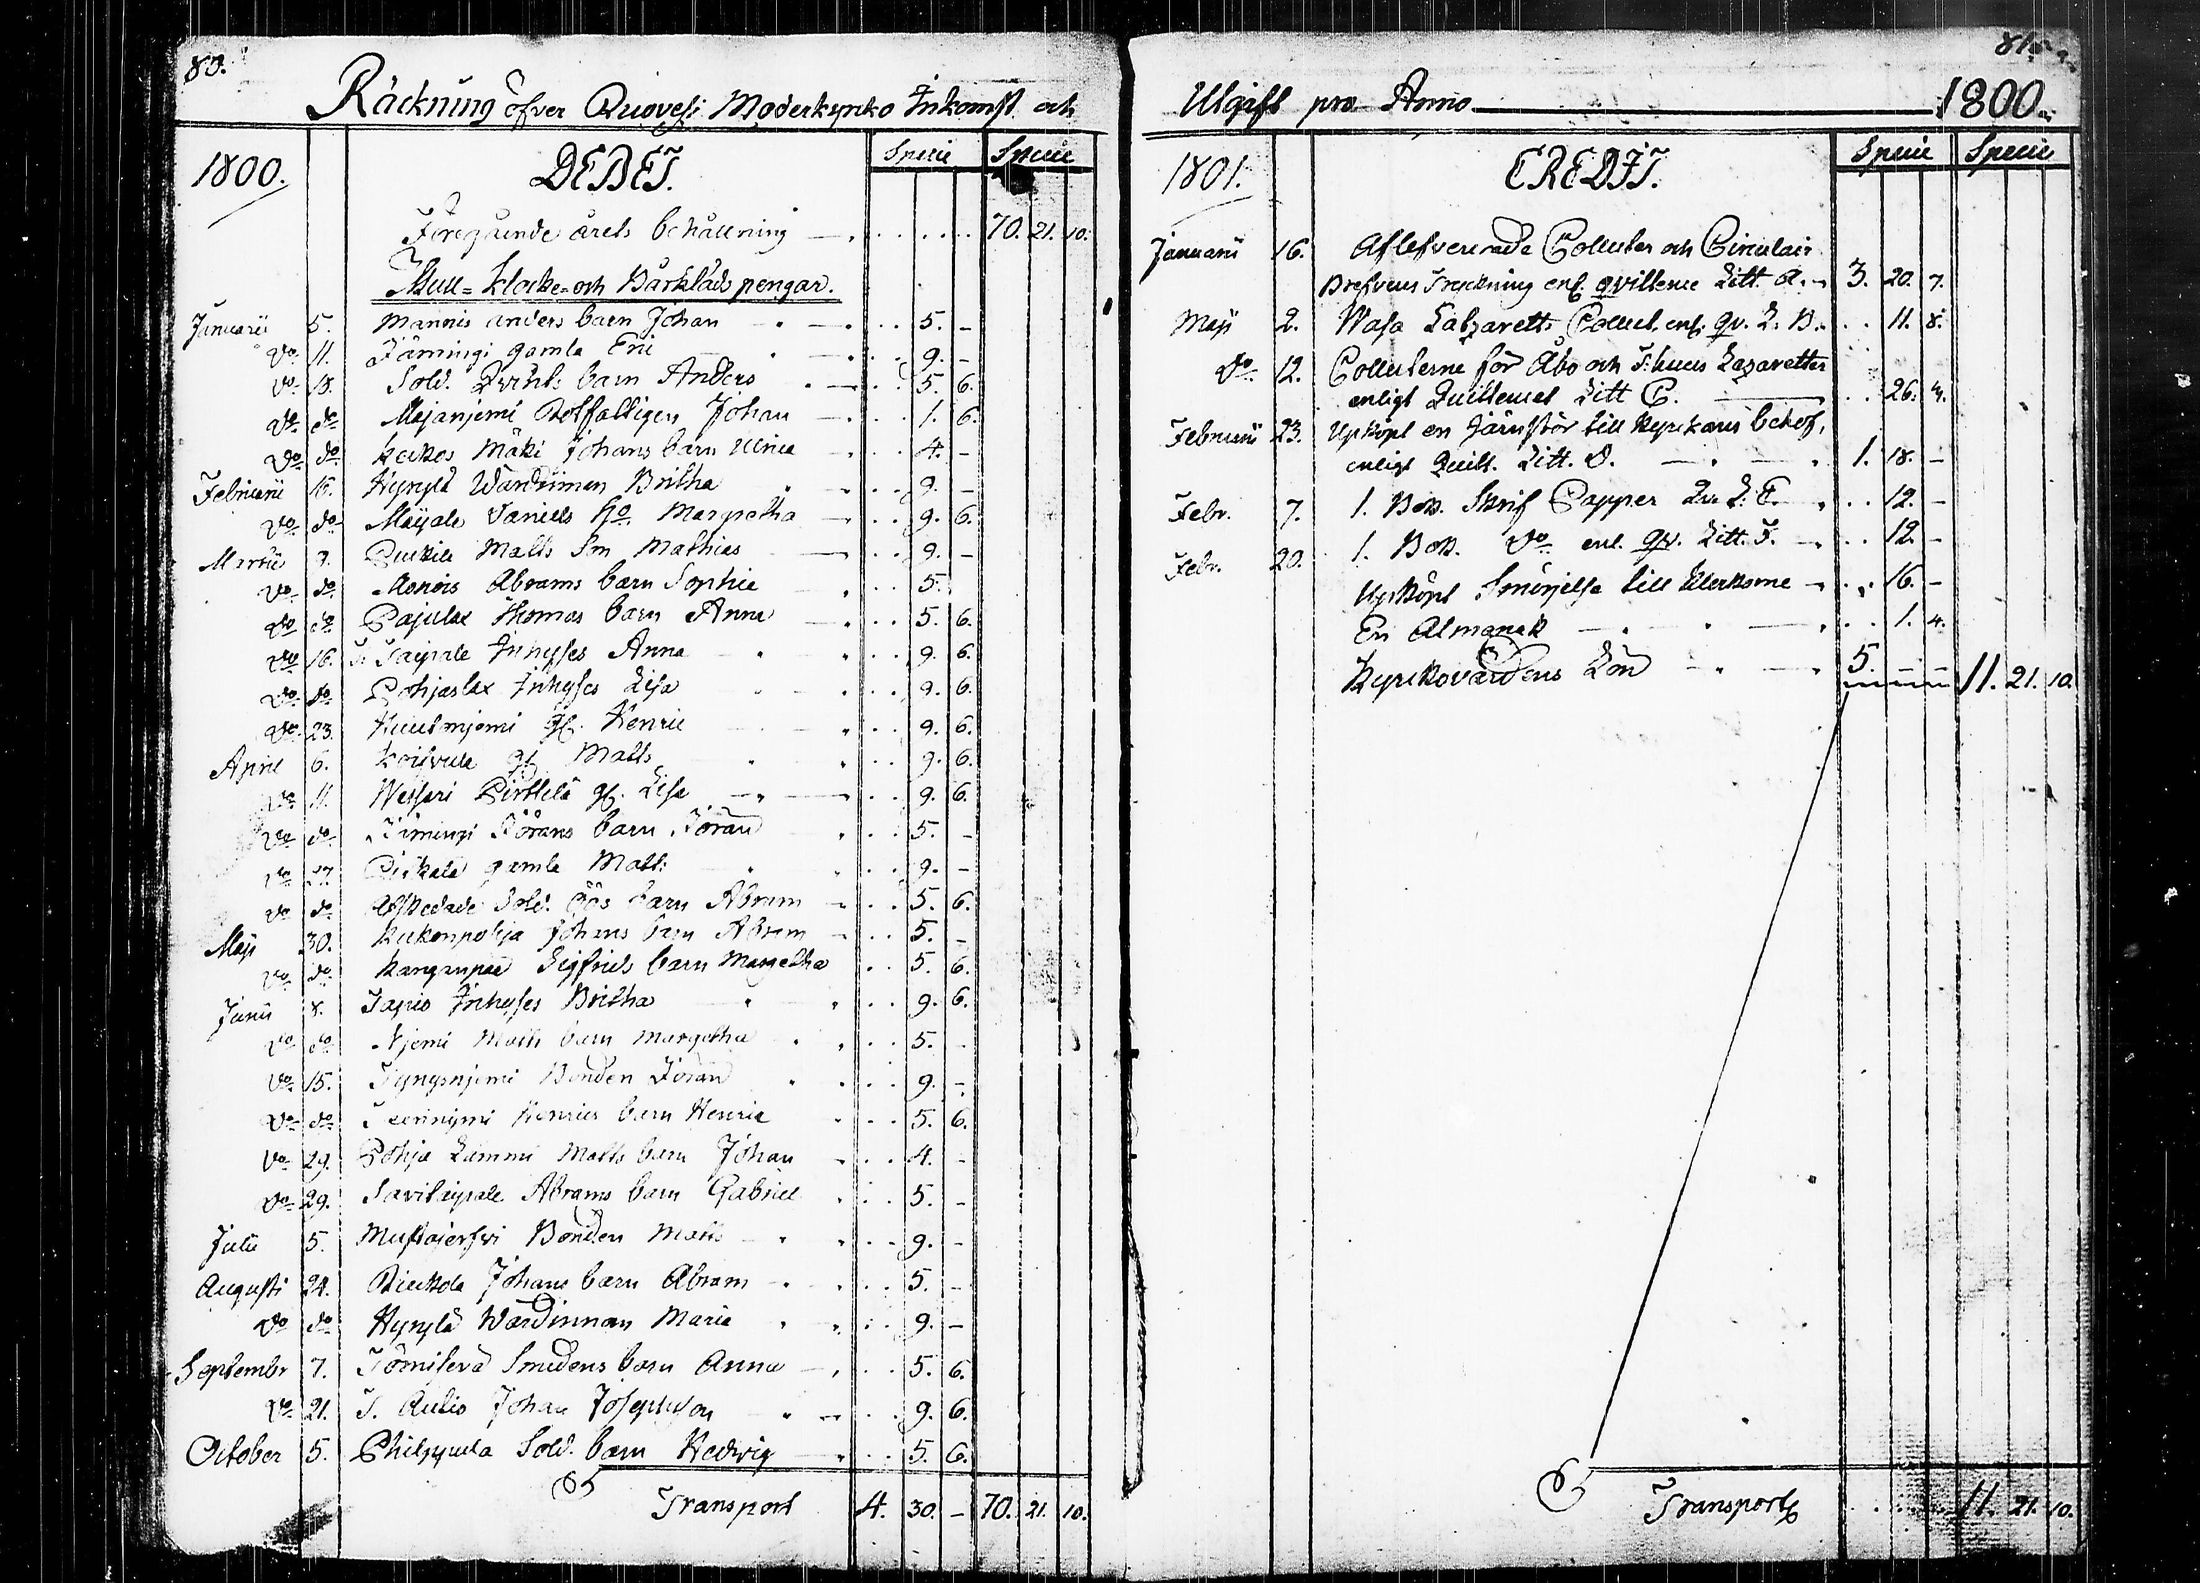 80.
Räckning öfver Quovesi Moderkyrko Inkomst och
1800. DEBET. Specie Specie
Föregående årets behållning 70. 21. 10.
Mull- Klocke- och Bårkläds pengar.
Januarii 5. Mannis Anders barn Johan 5. -
do 11. Jämingi gamla Eric 9. -
do 18. Sold. barn Anders 5. 6.
do do Majanjemi Rotfattigen Johan 1. 6.
do do Mäki Johans barn Ulrica 4. -
Februarii 16. Hyrylä Wärdinnan Britha 9. -
do do Daniels Ho Margretha 9. 6.
Martii 9. Matts Son Mathias 9. -
do do Abrams barn Sophia 5.
do do Pajulax Thomas barn Anna 5. 6.
do 16. Taipale Inhyses Anna 9. 6.
do do Pohjaslax Inhyses Lisa 9. 6.
do 23. gl. Henric 9. 6.
April 6. Koifvula gl. Matts 9. 6.
do 11. Wessari Pirttilä gl. Lisa 9. 6.
do do Jämingi Görans barn Göran 5. -
do 27. gamla Matts 9. -
do do Afskedade Sold. barn Abram 5. 6.
Maji 30. Kukonpohja Johans barn Abram 5. -
do do Kanganpää Sigfrids barn Margetha 5. 6.
Junii 8. Tapio Inhyses Britha 9. 6.
do do Njemi Matts barn Margetha 5. -
do 15. Tyrysnjemi Bonden Göran 9. -
do do Henrics barn Henric 5. 6.
do 29. Pohja Lammi Matts barn Johan 4. -
do 29. Savitaipale Abrams barn Gabriel 5. -
Julii 5. Mustajerfvi Bonden Matts 9. -
Augusti 24. Johans barn Abram 5. -
do do Hyrylä Wärdinnan Maria 9. -
Septembr 7. Törniseva Smedens barn Anna 5. 6.
do 21. T. Autio Johan Josephsson 9. 6.
October 5. Philppula Sold. barn Hedwig 5. 6.
Transport 4. 30. - 70. 21. 10.
81.
Utgift pro Anno 1800.
1801. CREDIT. Specie Specie
Januarii 16. Aflefvererade Collecter och Circulair
Brefvens Tryckning enl. qvittence Litt. A. 3. 20. 7.
Maji 2. Wasa Latzaretts Collect. enl. qv. L. B. 11. 8.
do 12. Collecterne för Åbo och T:huus Lazaretter
enligt Quittencet Litt C. 26. 4.
Februarii 23. Upköpt en Järnstör till Kyrkans behof,
enligt Quitt. Litt. D. 1. 18. -
Febr. 7. 1. Bok Skrif Papper Qv. L: E. 12. -
Febr. 20. 1. Bok do enl. qv. Litt. F. 12. -
Upköpt Smörjelse till Klockorne 16. -
En Almanak 1. 4.
Kyrkovärdens Lön 5. - - 11. 21. 10.
Transport 11. 21. 10.